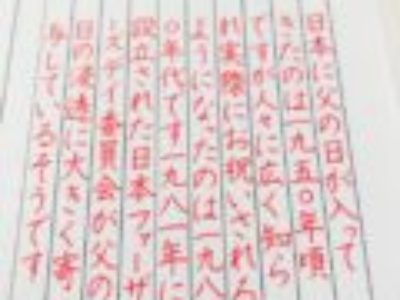 日本に父の日が入って
きたのは一九五〇年頃
ですが人々に広く知ら
れ実際にお祝いされる
ようになったのは一九八
〇年代です一九八一年に
設立された日本ファーザ
ーズデイ委員会が父の
日の浸透に大きく寄
与しているそうです